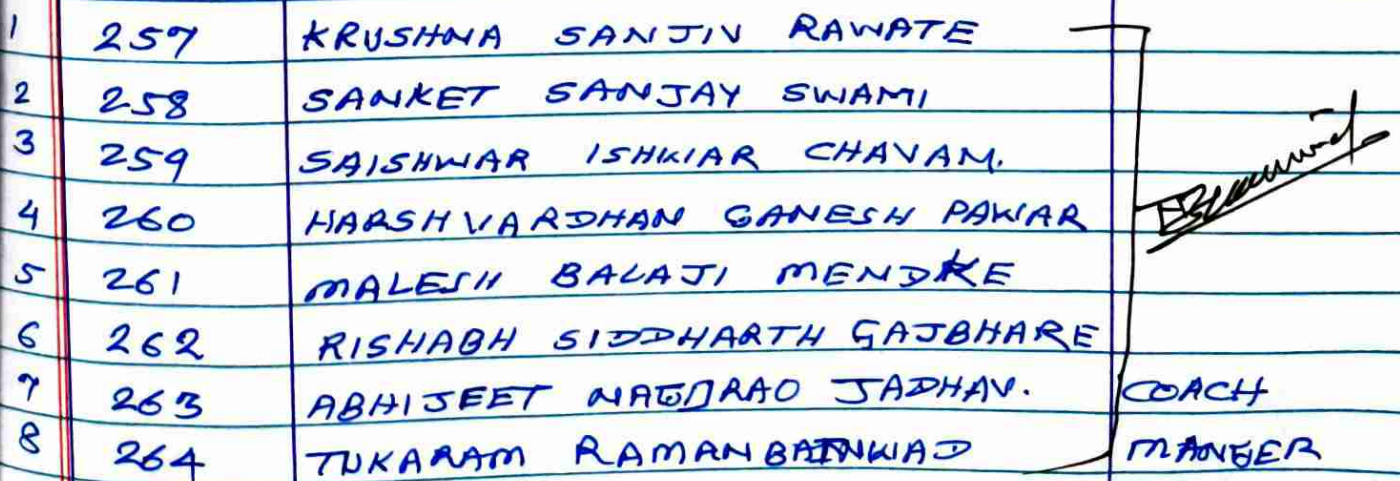 1 257 KRUSHNA SANJIV RAWATE
2 258 SANKET SANJAY SWAMI
3 259 SAISHWAR ISHWAR CHAVAM.
4 260 HARSHVARDHAN GANESH PAWAR
5 261 MALESH BALAJI MENDKE
6 262 RISHABH SIDDHARTH GAJBHARE
7 263 ABHIJEET JADHAV. COACH
8 264 TUKARAM RAMAN MANGER